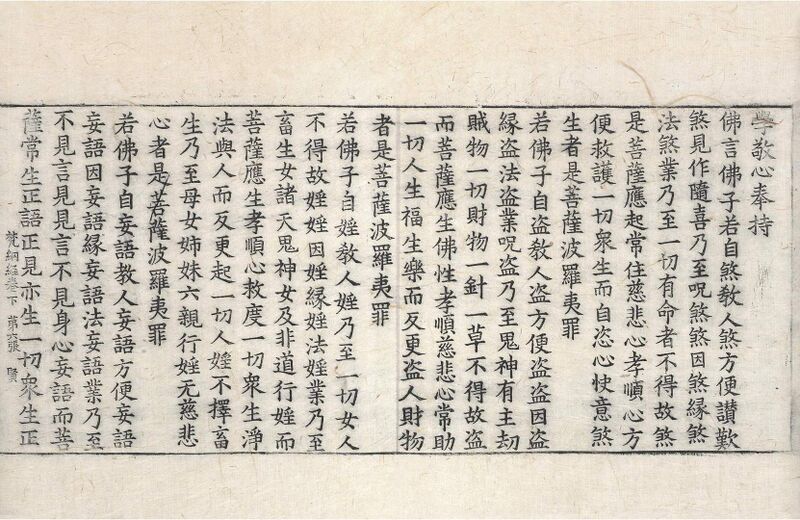 學敬心奉持
佛言佛子若自煞敎人煞方便讃歎
煞見作隨喜乃至呪煞煞因煞緣煞
法煞業乃至一切有命者不得故煞
是菩薩應起常住慈悲心孝順心方
便救護一切衆生而自恣心快意煞
生者是菩薩波羅夷罪
若佛子自盜敎人盜方便盜盜因盜
緣盜法盜業呪盜乃至鬼神有主刧
賊物一切財物一針一草不得故盜
而菩薩應生佛性孝順慈悲心常助
一切人生福生樂而反更盜人財物
者是菩薩波羅夷罪
若佛子自婬敎人婬乃至一切女人
不得故婬婬因婬緣婬法婬業乃至
畜生女諸天鬼神女及非道行婬而
菩薩應生孝順心救度一切衆生淨
法與人而反更起一切人婬不擇畜
生乃至母女姉妹六親行婬无慈悲
心者是菩薩波羅夷罪
若佛子自妄語教人妄語方便妄語
妄語因妄語緣妄語法妄語業乃至
不見言見見言不見身心妄語而菩
薩常生正語正見亦生一切衆生正
梵網經卷下 第六張 賢